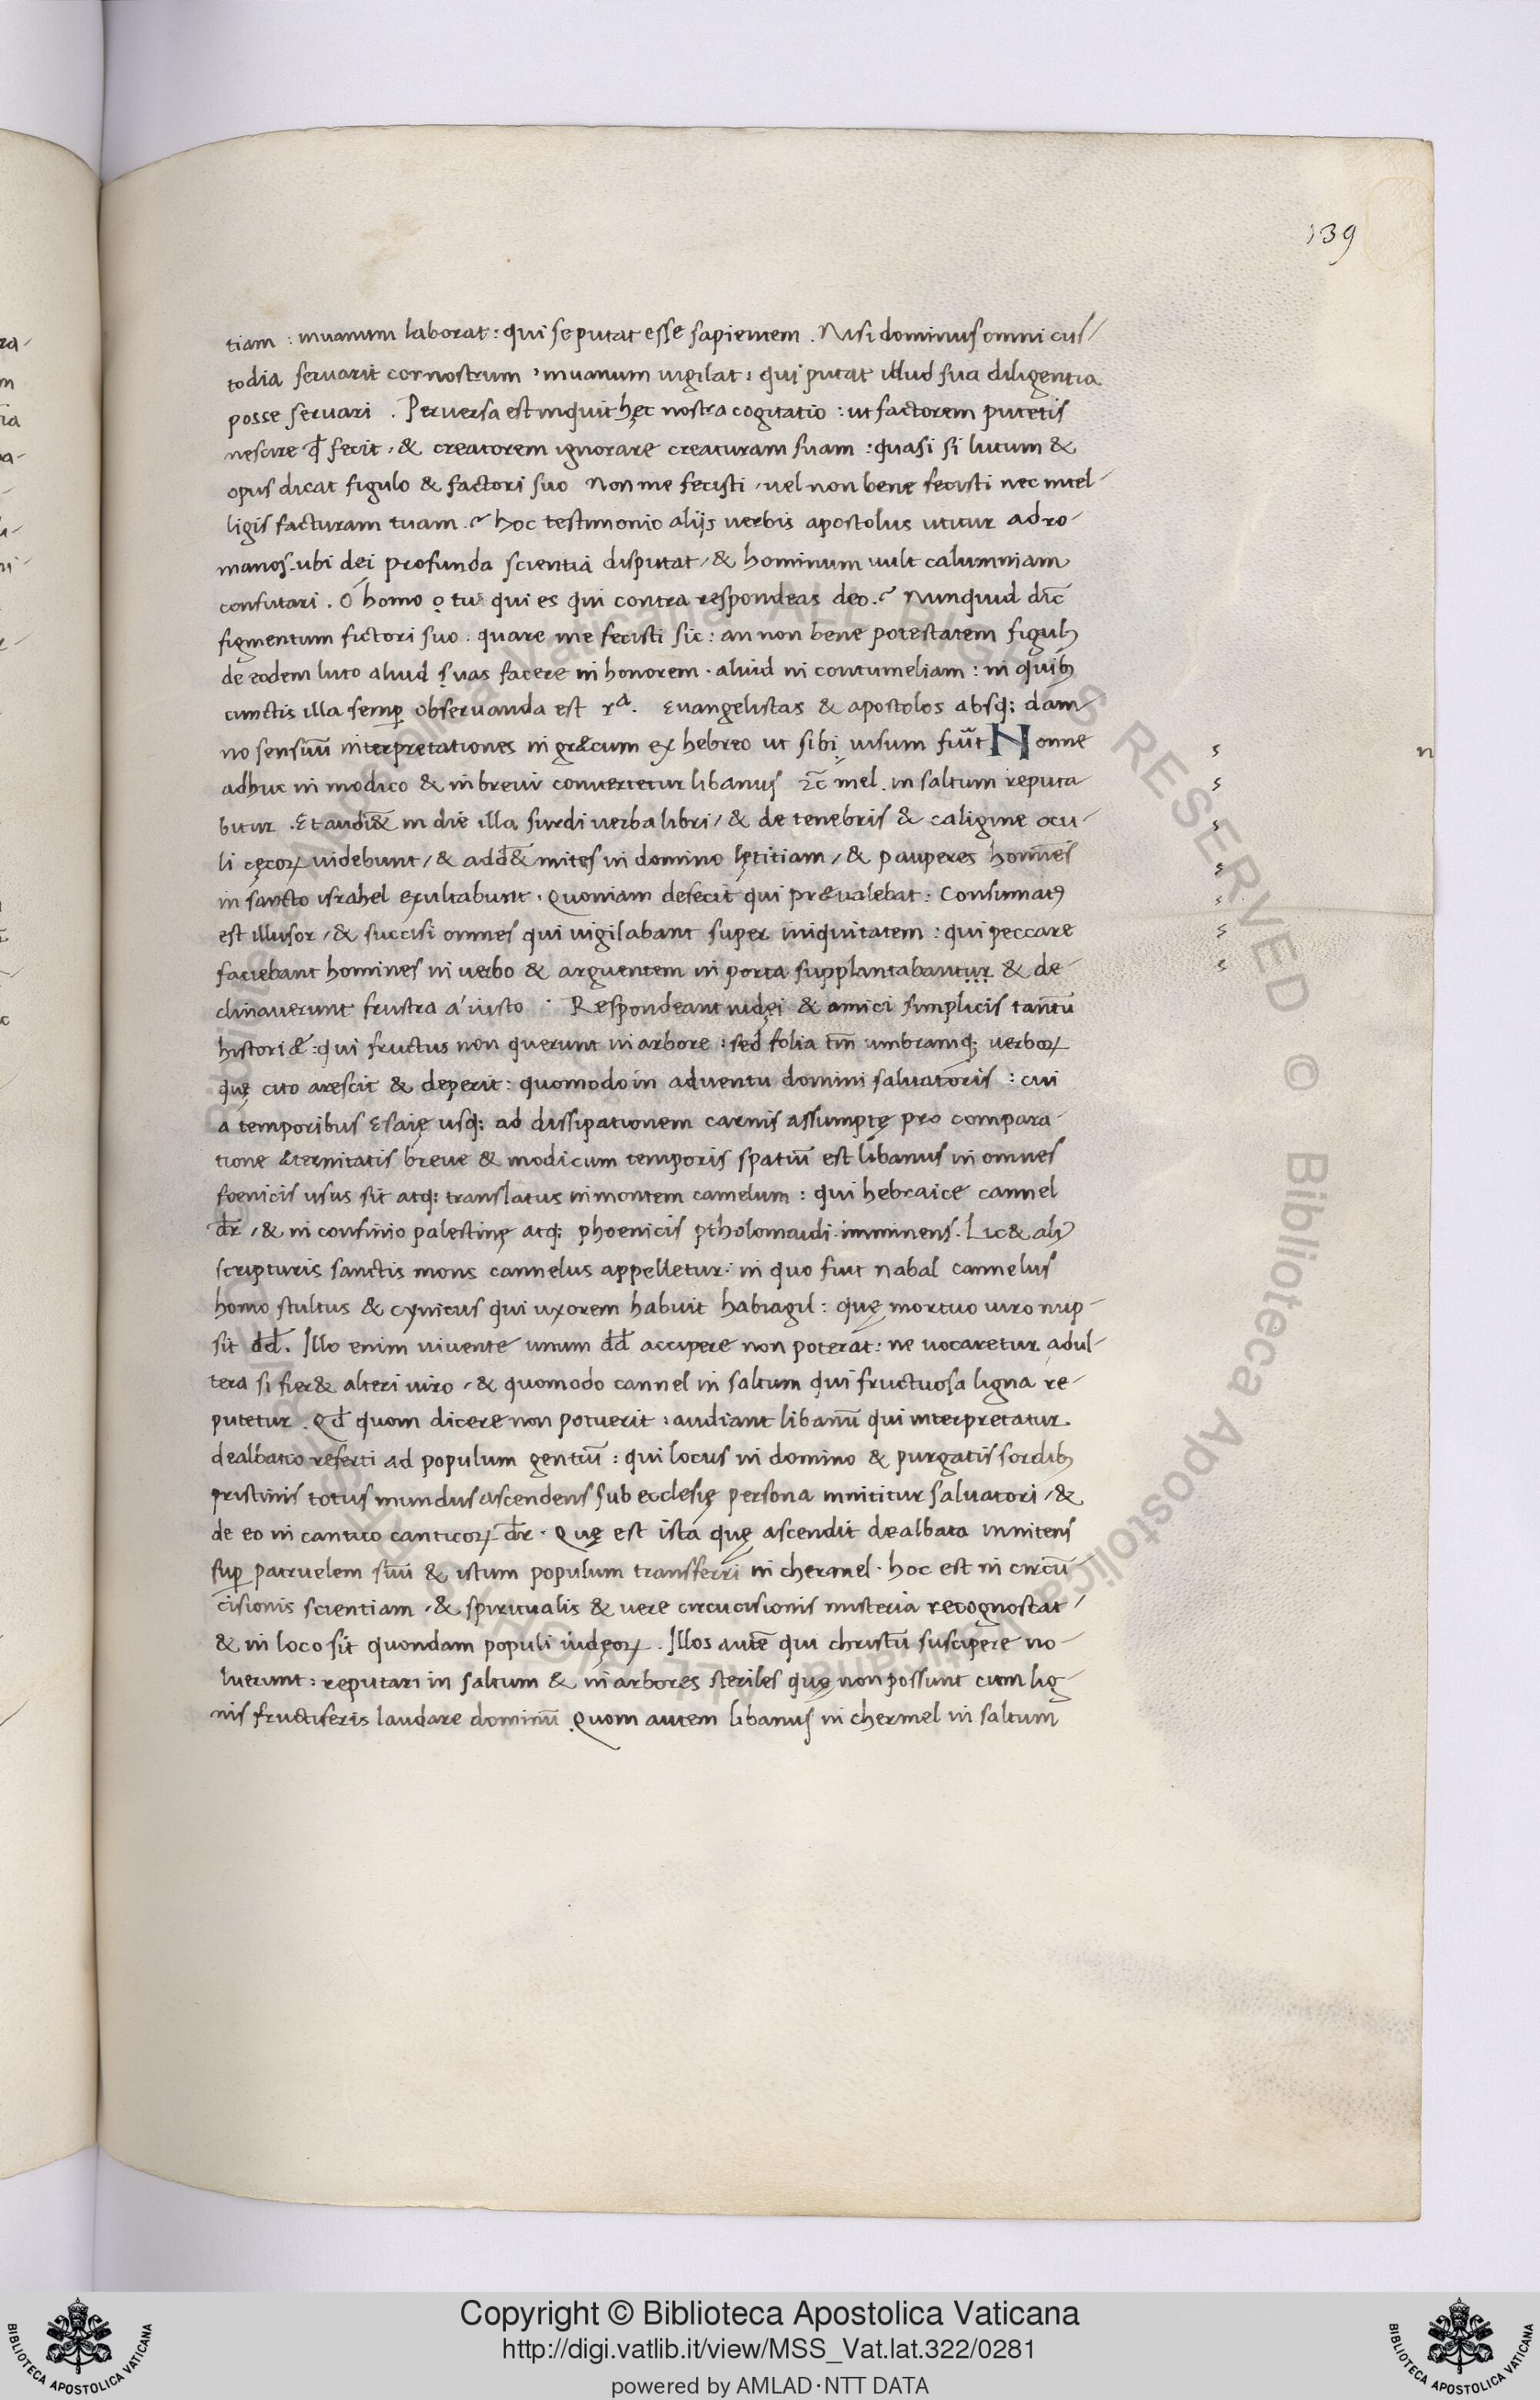 139
tiam : inuanum laborat : qui se putat esse sapientem . Nisi dominus omni cus/
todia seruarit cor nostrum : inuanum uigilat : qui putat illud sua diligentia
posse seruari . Peruersa est inquit hęc nostra cogitatio : ut factorem putetis
nescire qđ fecit , & creatorem ignorare creaturam suam : quasi si lutum &
opus dicat figulo & factori suo Non me fecisti , uel non bene fecisti nec intel-
ligis facturam tuam . Hoc testimonio alijs uerbis apostolus utitur ad ro-
manos . ubi dei profunda scientia disputat , & hominum uult calumniam
confutari . O homo o tu qui es qui contra respondeas deo . Nunquid dic̄
figmentum fictori suo . quare me fecisti sic : an non bene potestatem figulꝫ
de eodem luto aliud suas facere in honorem . aliud in contumeliam : in quibꝫ
cunctis illa semꝑ obseruanda est rᵃ . Euangelistas & apostolos absqꝫ dam-
no sensuū interpretationes in græcum ex hebreo ut sibi uisum fiūt Nonne
adhuc in modico & in breui conuertetur libanus ⁊c̄ mel . in saltum reputa
bitur . Et audi& in die illa surdi uerba libri , & de tenebris & caligine ocu-
li cęcoꝝ uidebunt , & add& mites in domino lętitiam , & pauperes homines
in sancto israhel exultabunt . Quoniam defecit qui præualebat . Consumatꝰ
est illusor , & succisi omnes qui uigilabant super iniquitatem : qui peccare
faciebant homines in uerbo & arguentem in porta supplantabantur & de-
clinauerunt frustra a iusto . Respondeant iudęi & amici simplicis tantū
historiæ : qui fructus non querunt in arbore : sed folia tm̄ umbramqꝫ uerboꝝ
quę cito arescit & deperit : quomodo in aduentu domini saluatoris : cui
a temporibus Esaię usqꝫ ad dissipationem carnis assumptę pro compara-
tione æternitatis breue & modicum temporis spatiū est libanus in omnes
foenicis usus sit atqꝫ translatus in montem camelum : qui hebraice cannel
dr̄ , & in confinio palestinę atqꝫ phoenicis ptholomaidi imminens . Lic& alijs
scripturis sanctis mons cannelus appelletur . in quo fuit nabal cannelus
homo stultus & cynicus qui uxorem habuit habiagil : quę mortuo uiro nup-
sit dd̄ . Illo enim uiuente unum dd̄ accipere non poterat : ne uocaretur adul-
tera si fier& alteri uiro , & quomodo cannel in saltum qui fructuosa ligna re-
putetur . Qđ quom dicere non potuerit : audiant libanū qui interpretatur
dealbatio referti ad populum gentiū : qui locus in domino & purgatis sordibꝫ
pristinis totus mundus ascendens sub ecclesię persona innititur saluatori , &
de eo in cantico canticoꝝ dr̄ . Quę est ista quę ascendit dealbata innitens
suꝑ patruelem suū & istum populum transferri in chermel . hoc est in circū
cisionis scientiam , & spiritualis & uere circucisionis misteria recognoscat
& in loco sit quondam populi iudęoꝝ . Illos autē qui christū suscipere no-
luerunt : reputari in saltum & in arbores steriles quę non possunt cum lig-
nis fructiferis laudare dominū Quom autem libanus in chermel in saltum
s
s
s
s
s
s
s
n
Copyright © Biblioteca Apostolica Vaticana
http://digi.vatlib.it/view/MSS_Vat.lat.322/0281
powered by AMLAD·NTT DATA
BIBLIOTECA APOSTOLICA VATICANA
BIBLIOTECA APOSTOLICA VATICANA